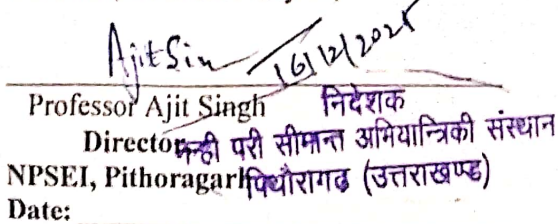 Ajit Sin 16/12/2025
Professor Ajit Singh निदेशक
Director नन्ही परी सीमान्त अभियान्त्रिकी संस्थान
NPSEI, Pithoragarh पिथौरागढ़ (उत्तराखण्ड)
Date: